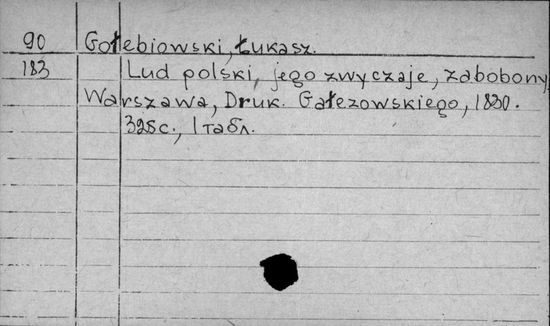 90 Gołebiowski, Łukasz.
183 Lud polski, jego zwyczaje, zabobony.
Warszawa, Druk. Gałezowskiego, 1830.
328с., 1 табл.